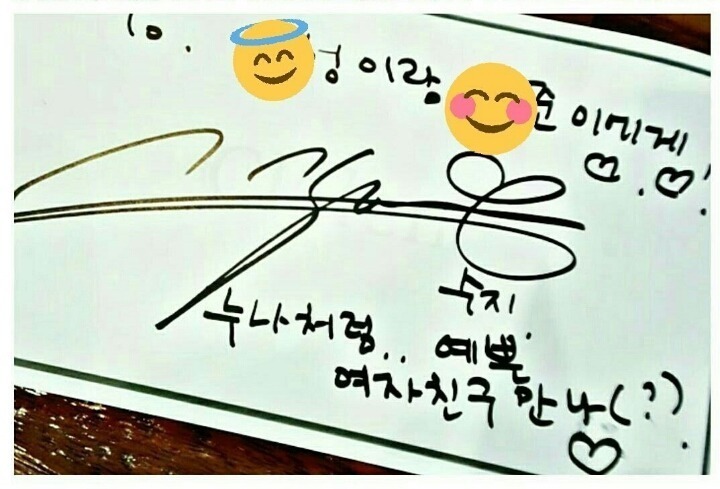 To. 정이랑 준이에게 ♡.♡
수지
누나처럼.. 예쁜
여자친구 만나(?)
♡